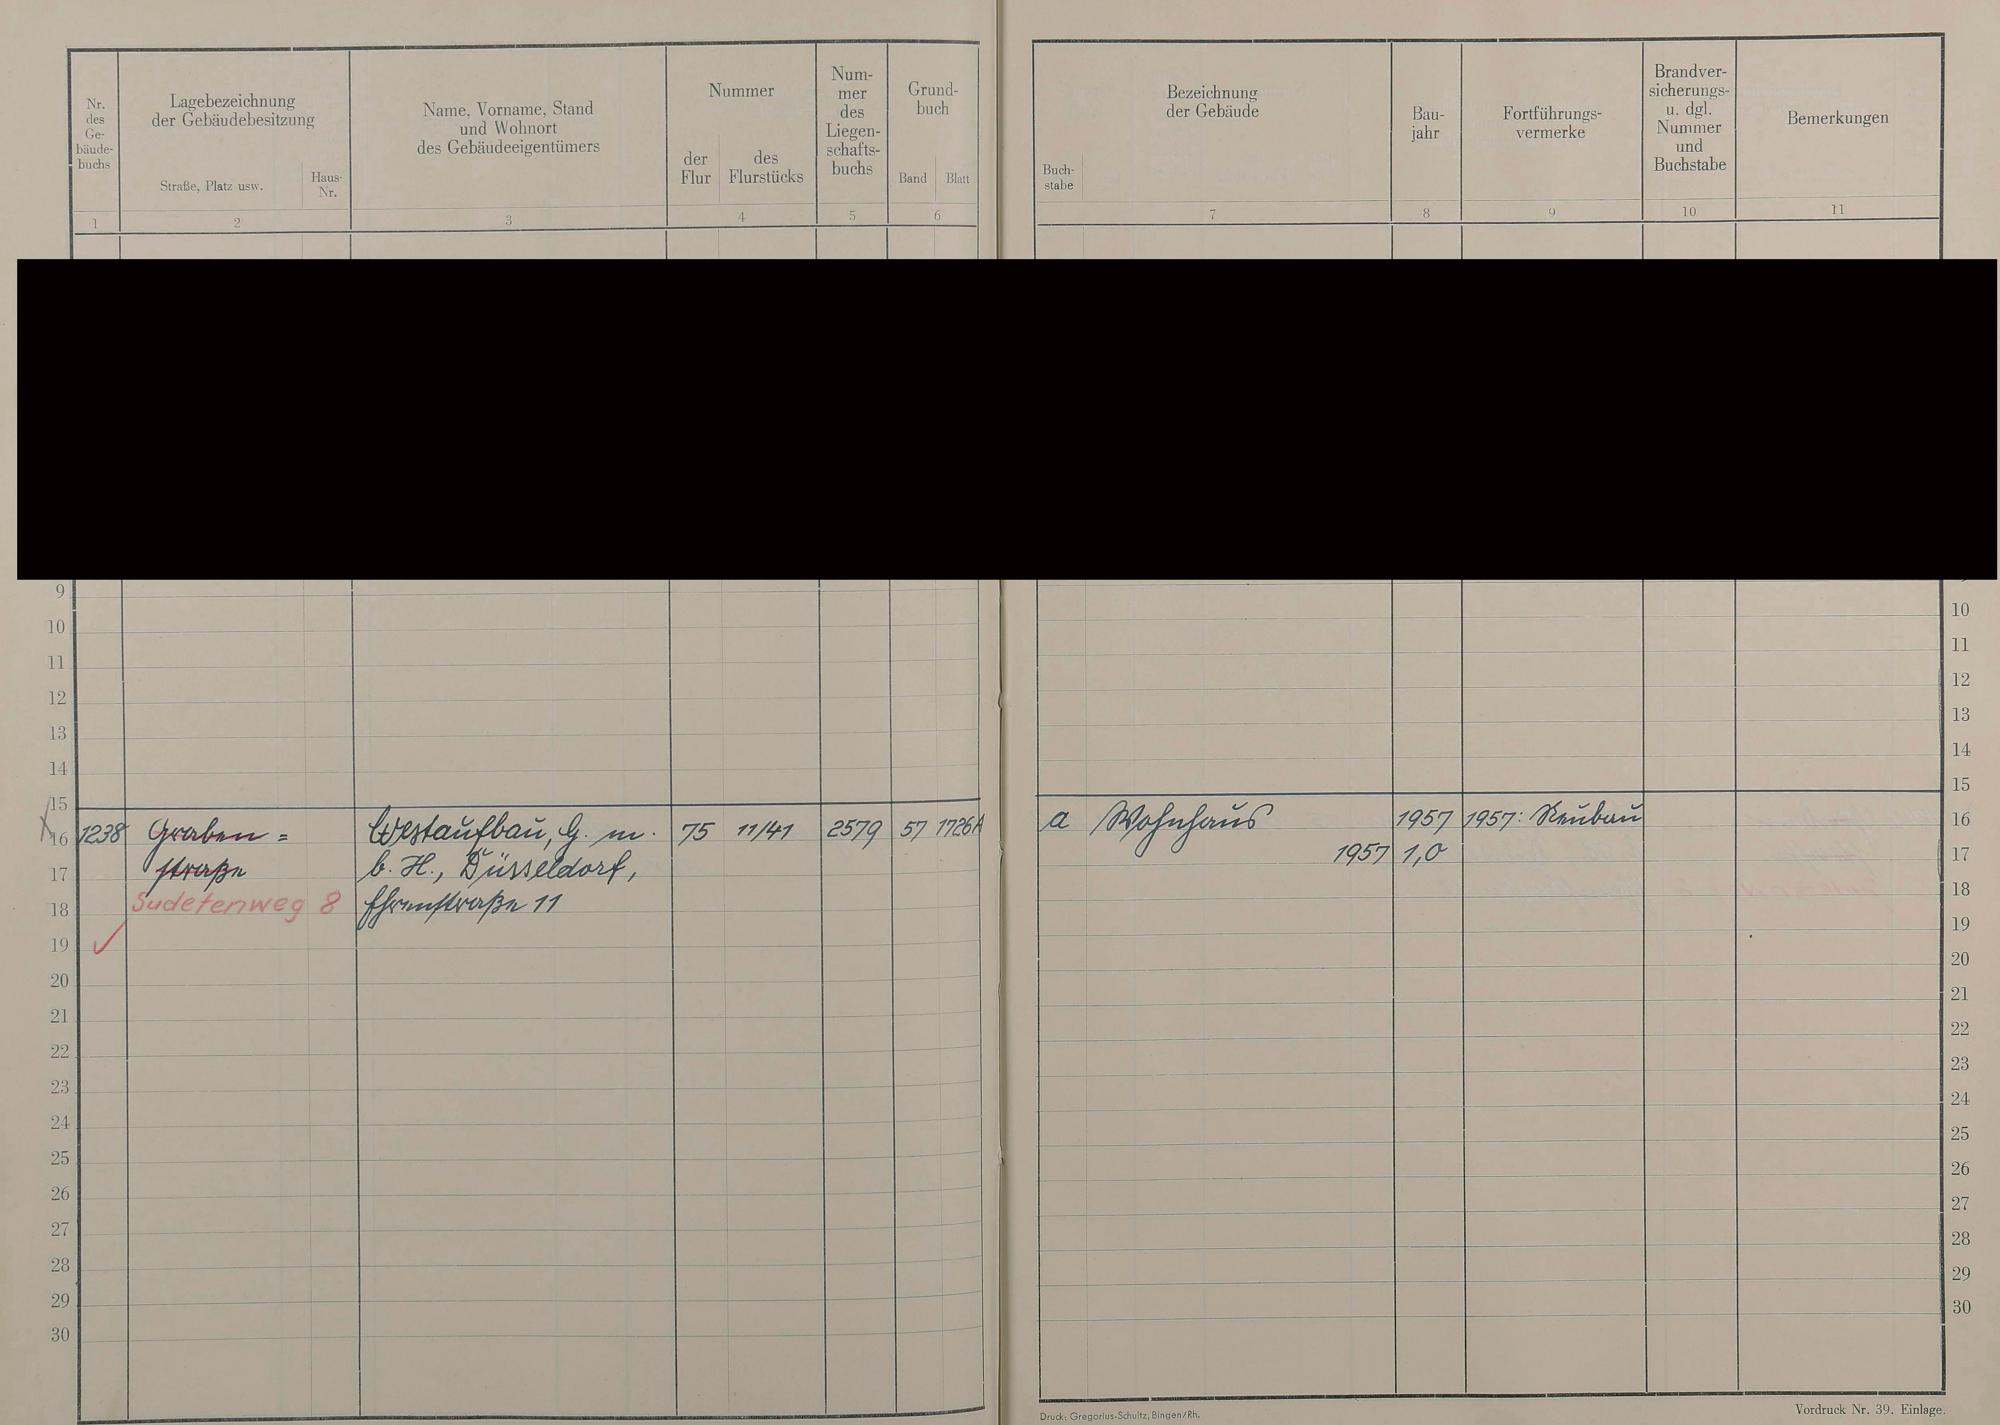 Nr.
des
Ge-
bäude-
buchs
Lagebezeichnung
der Gebäudebesitzung
Straße, Platz usw.
Haus-
Nr.
Name, Vorname, Stand
und Wohnort
des Gebäudeeigentümers
Nummer
der
Flur
des
Flurstücks
Num-
mer
des
Liegen-
schafts-
buchs
Grund-
buch
Band
Blatt
1
2
3
4
5
6
Buch-
stabe
Bezeichnung
der Gebäude
Bau-
jahr
Fortführungs-
vermerke
Brandver-
sicherungs-
u. dgl.
Nummer
und
Buchstabe
Bemerkungen
7
8
9
10
11
9
10
11
12
13
14
15
16 1238 Graben= Westaufbau, G. m. 75 11/41 2579 57 1726A
17 straße b. H., Düsseldorf,
18 Sudetenweg 8 Ehrenstraße 11
19
20
21
22
23
24
25
26
27
28
29
30
10
11
12
13
14
15
a Wohnhaus 1957 1957: Neubau 16
1957 1,0 17
18
19
20
21
22
23
24
25
26
27
28
29
30
Druck: Gregorius-Schultz, Bingen/Rh.
Vordruck Nr. 39. Einlage.